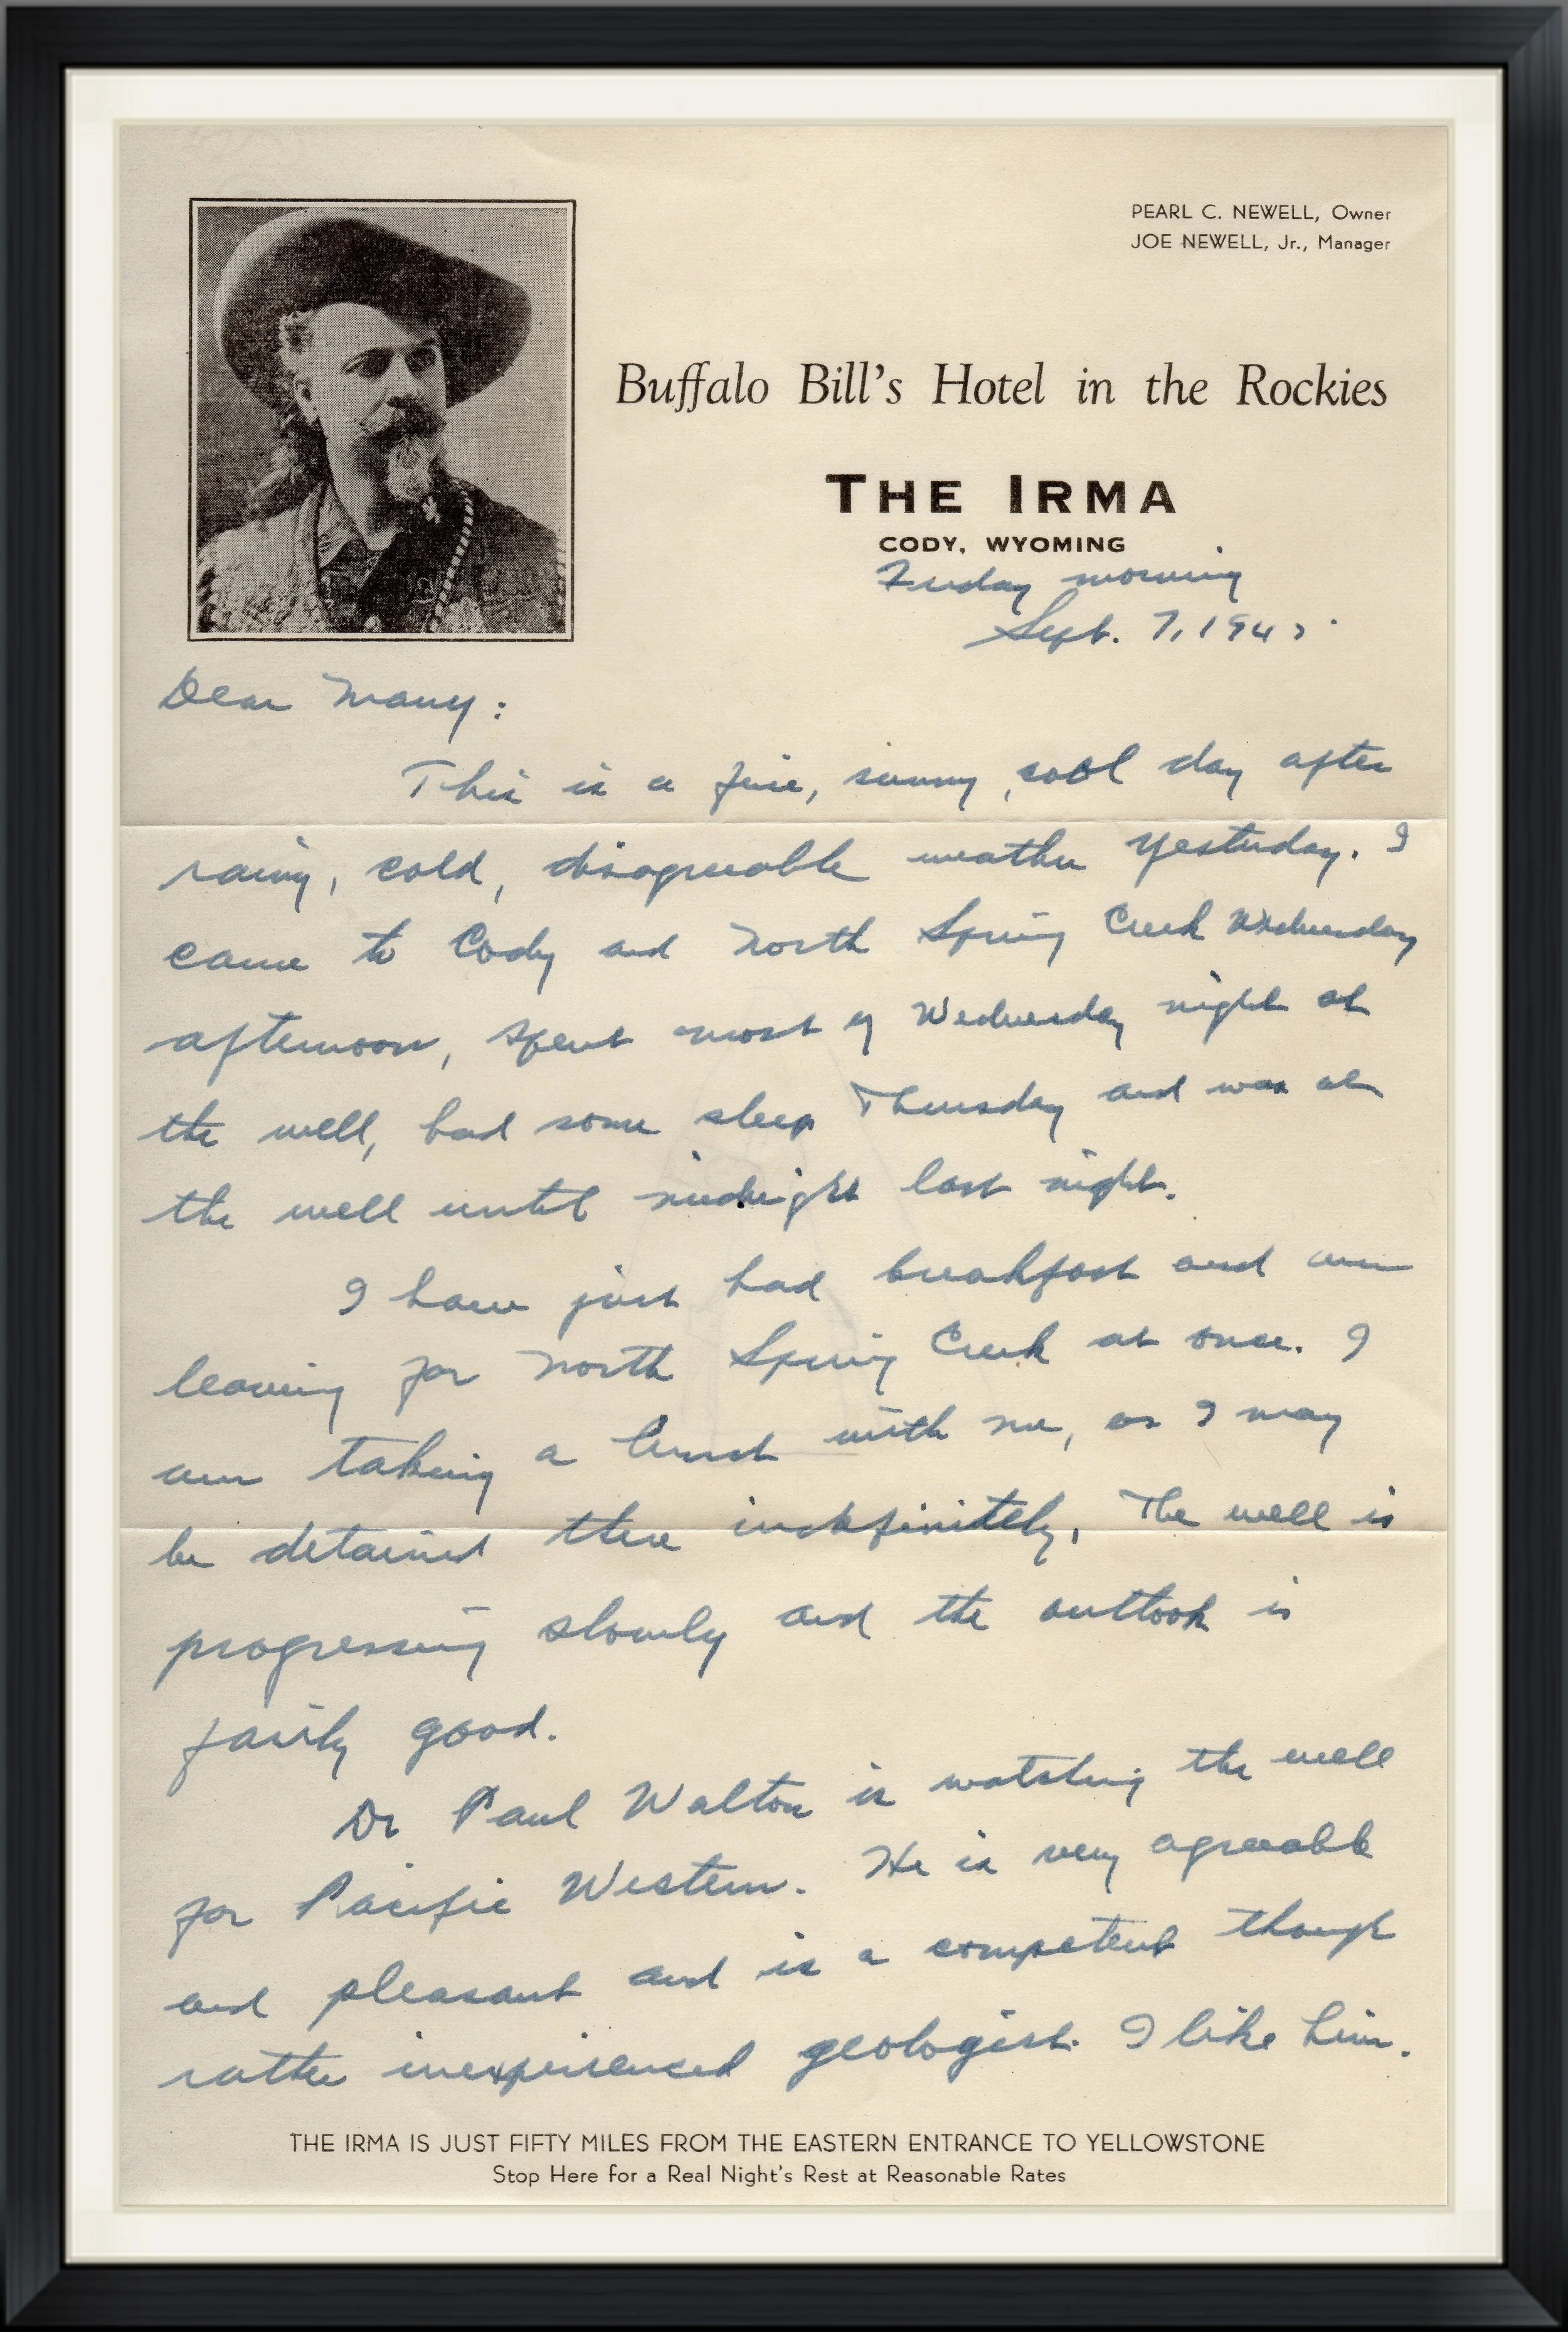 PEARL C. NEWELL, Owner
JOE NEWELL, Jr., Manager
Buffalo Bill's Hotel in the Rockies
THE IRMA
CODY, WYOMING
Friday morning
Sept. 7, 1945.
Dear Mary:
This is a fine, sunny, cool day after
rainy, cold, disagreeable weather yesterday. I
came to Cody and North Spring Creek Wednesday
afternoon, spent most of Wednesday night at
the well, had some sleep Thursday and was at
the well until midnight last night.
I have just had breakfast and am
leaving for North Spring Creek at once. I
am taking a lunch with me, as I may
be detained there indefinitely. The well is
progressing slowly and the outlook is
fairly good.
Dr Paul Walton is watching the well
for Pacific Western. He is very agreeable
and pleasant and is a competent though
rather inexperienced geologist. I like him.
THE IRMA IS JUST FIFTY MILES FROM THE EASTERN ENTRANCE TO YELLOWSTONE
Stop Here for a Real Night's Rest at Reasonable Rates